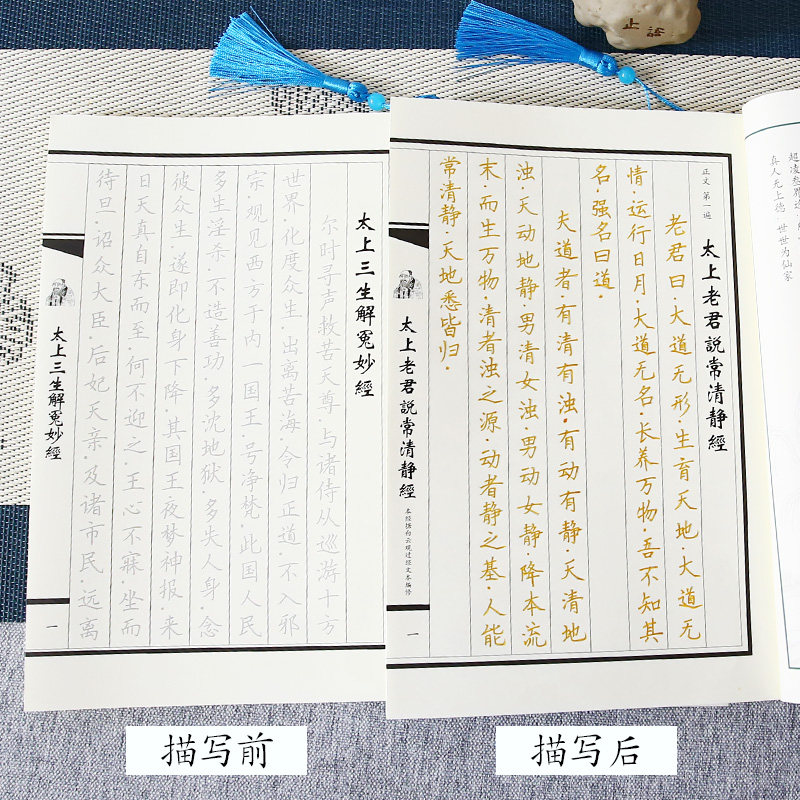 止語
真人无上德 世世为仙家
太上老君說常清静經
正文 第一遍
老君曰·大道无形·生育天地·大道无
情·运行日月·大道无名·长养万物·吾不知其
名·强名曰道·
夫道者·有清有浊·有动有静·天清地
浊·天动地静·男清女浊·男动女静·降本流
末·而生万物·清者浊之源·动者静之基·人能
常清静·天地悉皆归·
太上老君說常清静經
本经据白云观过经文本编修
一
太上三生解冤妙經
尔时寻声救苦天尊·与诸侍从巡游十方
世界·化度众生·出离苦海·令归正道·不入邪
宗·观见西方于内一国王·号净梵·此国人民
多生淫杀·不造善功·多沈地狱·多失人身·念
彼众生·遂即化身下降·其国王夜梦神报·来
日天真自东而至·何不迎之·王心不寐·坐而
待旦·诏众大臣·后妃天亲·及诸市民·远离
太上三生解冤妙經
一
描写前
描写后